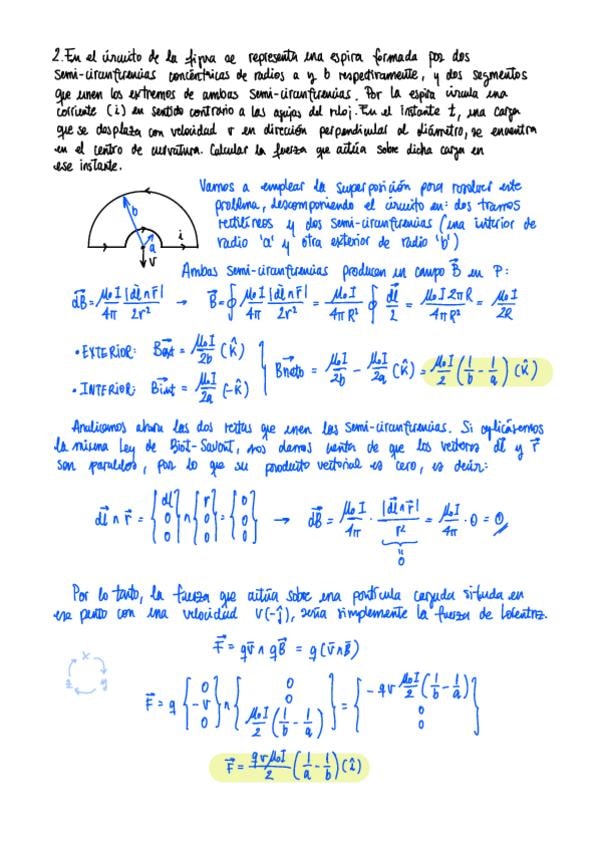 2. En el circuito de la figura se representa una espira formada por dos
semi-circunferencias concéntricas de radios a y b respectivamente, y dos segmentos
que unen los extremos de ambas semi-circunferencias. Por la espira circula una
corriente (i) en sentido contrario a las agujas del reloj. En el instante t, una carga
que se desplaza con velocidad v en dirección perpendicular al diámetro, se encuentra
en el centro de curvatura. Calcular la fuerza que actúa sobre dicha carga en
ese instante.
Vamos a emplear la superposición para resolver este
problema, descomponiendo el circuito en: dos tramos
rectilíneos y dos semi-circunferencias (una interior de
radio 'a' y otra exterior de radio 'b')
b
a
i
v
Ambas semi-circunferencias producen un campo B⃗ en P:
dB⃗ = μ₀I/4π |dl⃗∧r⃗|/2r² → B⃗ = ∮ μ₀I/4π |dl⃗∧r⃗|/2r² = μ₀I/4πR² ∮ dl⃗/2 = μ₀I2πR/4πR² = μ₀I/2R
• EXTERIOR: B⃗ext = μ₀I/2b (k̂)
• INTERIOR: B⃗int = μ₀I/2a (-k̂)
B⃗neto = μ₀I/2b - μ₀I/2a (k̂) = μ₀I/2 (1/b - 1/a) (k̂)
Analicemos ahora las dos rectas que unen las semi-circunferencias. Si aplicásemos
la misma Ley de Biot-Savart, nos damos cuenta de que los vectores dl⃗ y r⃗
son paralelos, por lo que su producto vectorial es cero, es decir:
dl⃗∧r⃗ = {dl 0 0} ∧ {r 0 0} = {0 0 0} → dB⃗ = μ₀I/4π · |dl⃗∧r⃗|/r² = μ₀I/4π · 0 = 0
"
0
Por lo tanto, la fuerza que actúa sobre una partícula cargada situada en
ese punto con una velocidad v(-ĵ), sería simplemente la fuerza de Lorentz.
F⃗ = qv⃗∧qB⃗ = q(v⃗∧B⃗)
x
z y
F⃗ = q {0 -v 0} ∧ {0 0 μ₀I/2 (1/b - 1/a)} = {-qv μ₀I/2 (1/b - 1/a) 0 0}
F⃗ = qvμ₀I/2 (1/a - 1/b) (î)